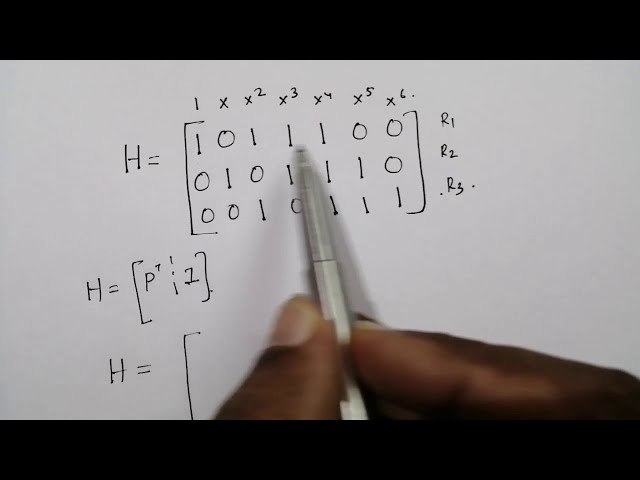 1 x x² x³ x⁴ x⁵ x⁶.
H = [ 1 0 1 1 1 0 0 ] R₁
0 1 0 1 1 1 0 R₂
0 0 1 0 1 1 1 .R₃.
H = [Pᵀ ¦ I].
H = [